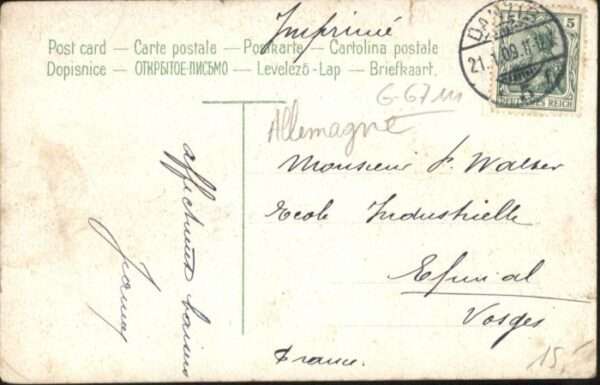 Imprimé
Post card — Carte postale — Postkarte — Cartolina postale
Dopisnice — ОТКРЫТОЕ-ПИСЬМО — Levelező-Lap — Briefkaart.
5
DEUTSCHES REICH
DANZIG
21.
09. 11-12
5
G-67m
Allemagne
Monsieur P. Walter
Ecole Industrielle
Epinal
Vosges
France.
affectueux baisers
15.-